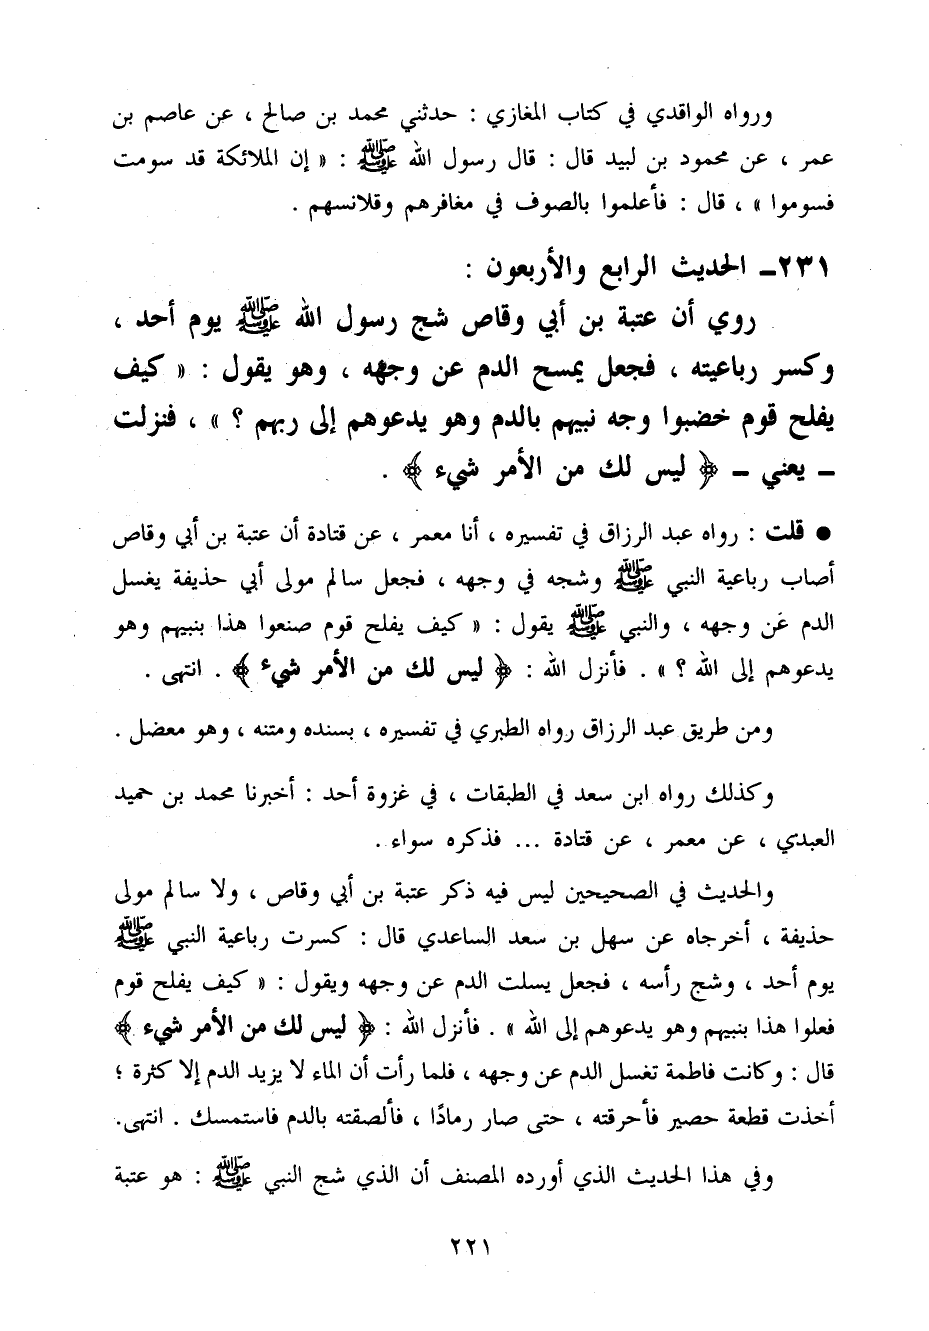 ورواه الواقدي في كتاب المغازي : حدثني محمد بن صالح ، عن عاصم بن
عمر ، عن محمود بن لبيد قال : قال رسول الله ﷺ : « إن الملائكة قد سومت
فسوموا » ، قال : فأعلموا بالصوف في مغافرهم وقلانسهم .
٢٣١ـ الحديث الرابع والأربعون :
روي أن عتبة بن أبي وقاص شج رسول الله ﷺ يوم أحد ،
وكسر رباعيته ، فجعل يمسح الدم عن وجهه ، وهو يقول : « كيف
يفلح قوم خضبوا وجه نبيهم بالدم وهو يدعوهم إلى ربهم ؟ » ، فنزلت
ـ يعني ـ ﴿ ليس لك من الأمر شيء ﴾ .
● قلت : رواه عبد الرزاق في تفسيره ، أنا معمر ، عن قتادة أن عتبة بن أبي وقاص
أصاب رباعية النبي ﷺ وشجه في وجهه ، فجعل سالم مولى أبي حذيفة يغسل
الدم عَن وجهه ، والنبي ﷺ يقول : « كيف يفلح قوم صنعوا هذا بنبيهم وهو
يدعوهم إلى الله ؟ » . فأنزل الله : ﴿ ليس لك من الأمر شيء ﴾ . انتهى .
ومن طريق عبد الرزاق رواه الطبري في تفسيره ، بسنده ومتنه ، وهو معضل .
وكذلك رواه ابن سعد في الطبقات ، في غزوة أحد : أخبرنا محمد بن حميد
العبدي ، عن معمر ، عن قتادة ... فذكره سواء .
والحديث في الصحيحين ليس فيه ذكر عتبة بن أبي وقاص ، ولا سالم مولى
حذيفة ، أخرجاه عن سهل بن سعد الساعدي قال : كسرت رباعية النبي ﷺ
يوم أحد ، وشج رأسه ، فجعل يسلت الدم عن وجهه ويقول : « كيف يفلح قوم
فعلوا هذا بنبيهم وهو يدعوهم إلى الله » . فأنزل الله : ﴿ ليس لك من الأمر شيء ﴾
قال : وكانت فاطمة تغسل الدم عن وجهه ، فلما رأت أن الماء لا يزيد الدم إلا كثرة ؛
أخذت قطعة حصير فأحرقته ، حتى صار رمادًا ، فألصقته بالدم فاستمسك . انتهى.
وفي هذا الحديث الذي أورده المصنف أن الذي شج النبي ﷺ : هو عتبة
٢٢١